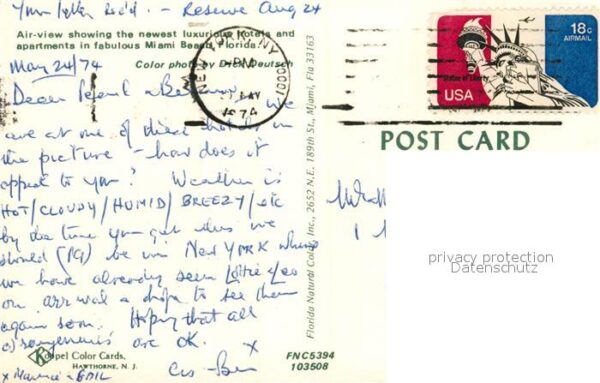 Your letter Rec'd. - Reserve Aug 24
Air-view showing the newest luxurious hotels and
apartments in fabulous Miami Beach, Florida.
May 24/74 Color photo by Dick Deutsch
Dear Pearl & we
are at one of these hotels in
the picture - how does it
appeal to you? Weather is
HOT/CLOUDY/HUMID/BREEZY/etc
by the time you get this we
should (PG) be in New YORK where
we have already seen Lottie & Leo
on arrival & hope to see them
again soon. Hoping that all
arrangements are OK.
x
Koppel Color Cards,
HAWTHORNE, N. J.
Cis - Ben
x Maurice & GAIL
FNC5394
103508
Florida Natural Color, Inc., 2652 N.E. 189th St., Miami, Fla 33163
NEW YORK, NY
10001
PM
MAY
1974
18c
AIRMAIL
Statue of Liberty
USA
POST CARD
privacy protection
Datenschutz